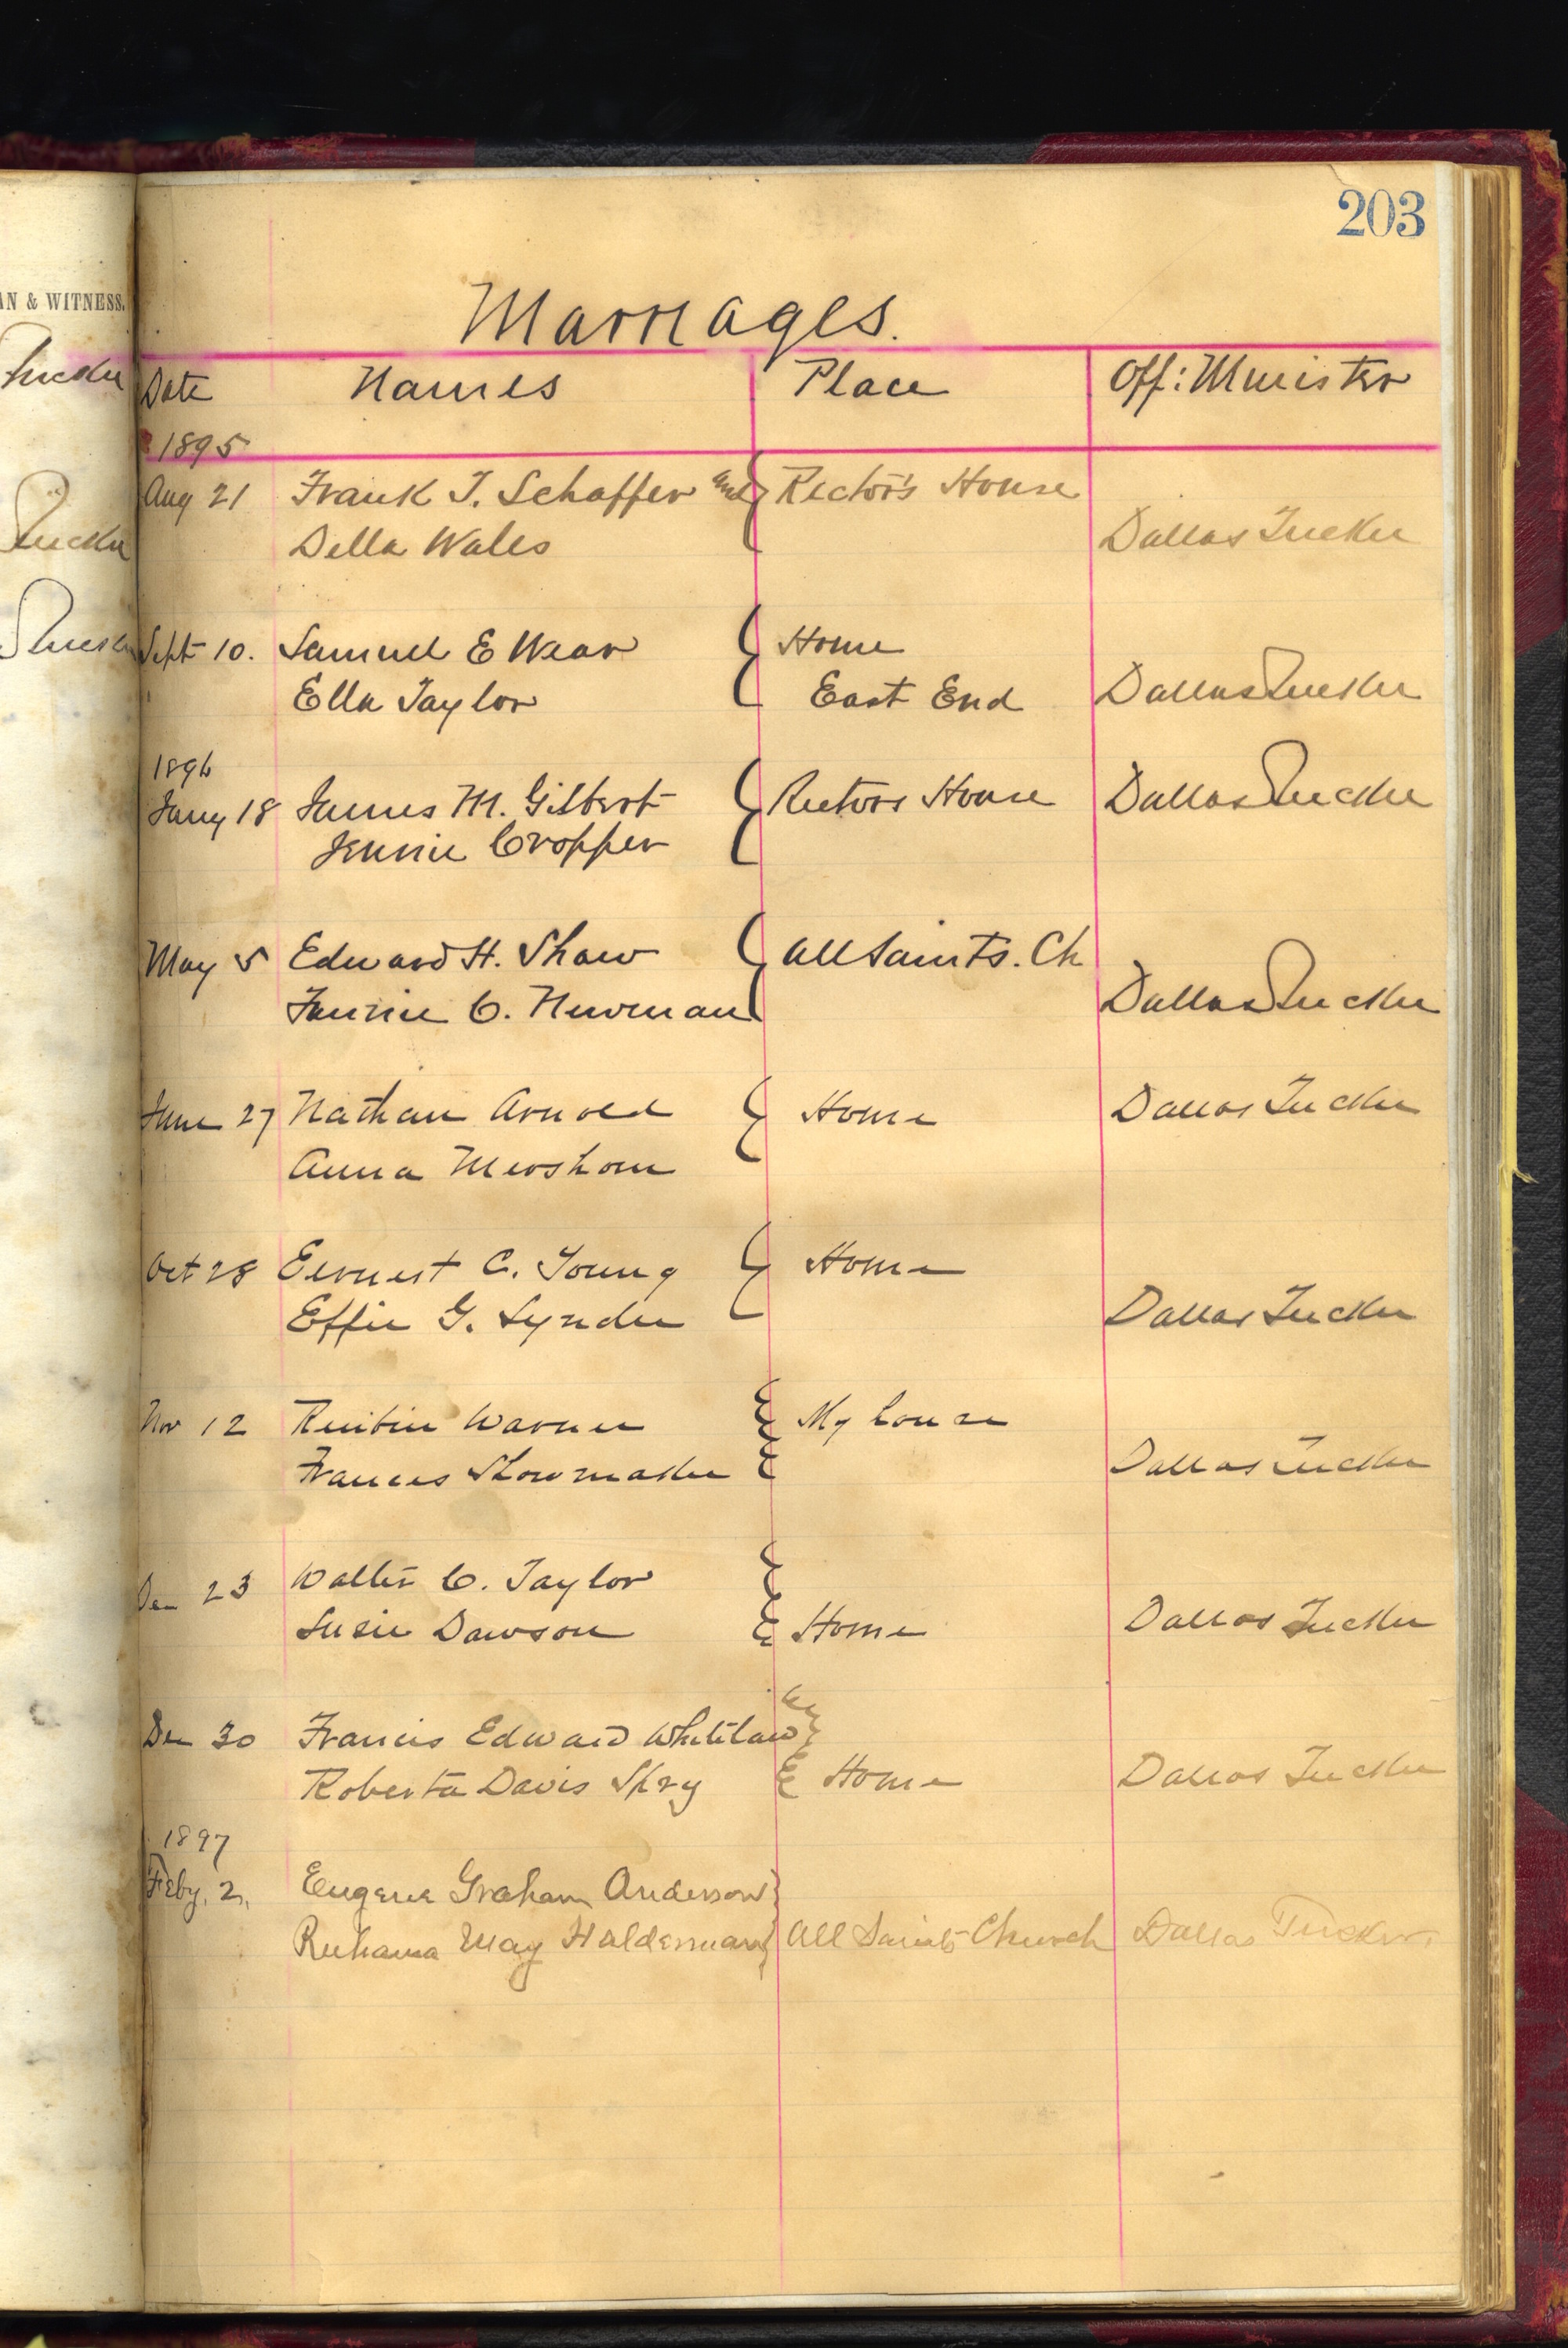 203
AN & WITNESS.
Marriages.
Date Names Place Off: Minister
1895
Aug 21 Frank T. Schaffer and Rector's House
Della Wales Dallas Tucker
Sept 10. Samuel E Wear Home
Ella Taylor East End Dallas Tucker
1896
Jany 18 James M. Gilbert Rectors House Dallas Tucker
Jennie Cropper
May 5 Edward H. Shaw All Saints. Ch
Fannie C. Newman Dallas Tucker
June 27 Nathan Arnold Home Dallas Tucker
Anna Mershom
Oct 28 Eernest C. Young Home
Effie G. Synder Dallas Tucker
Nov 12 Reubin Warner My house
Frances Showmaker Dallas Tucker
Dec 23 Walter C. Taylor
Susie Dawson Home Dallas Tucker
Dec 30 Francis Edward Whitelaw
Roberta Davis Spry Home Dallas Tucker
1897
Feby. 2, Eugene Graham Anderson
Ruhama May Halderman All Saints Church Dallas Tucker.
Tucker
Tucker
Tucker